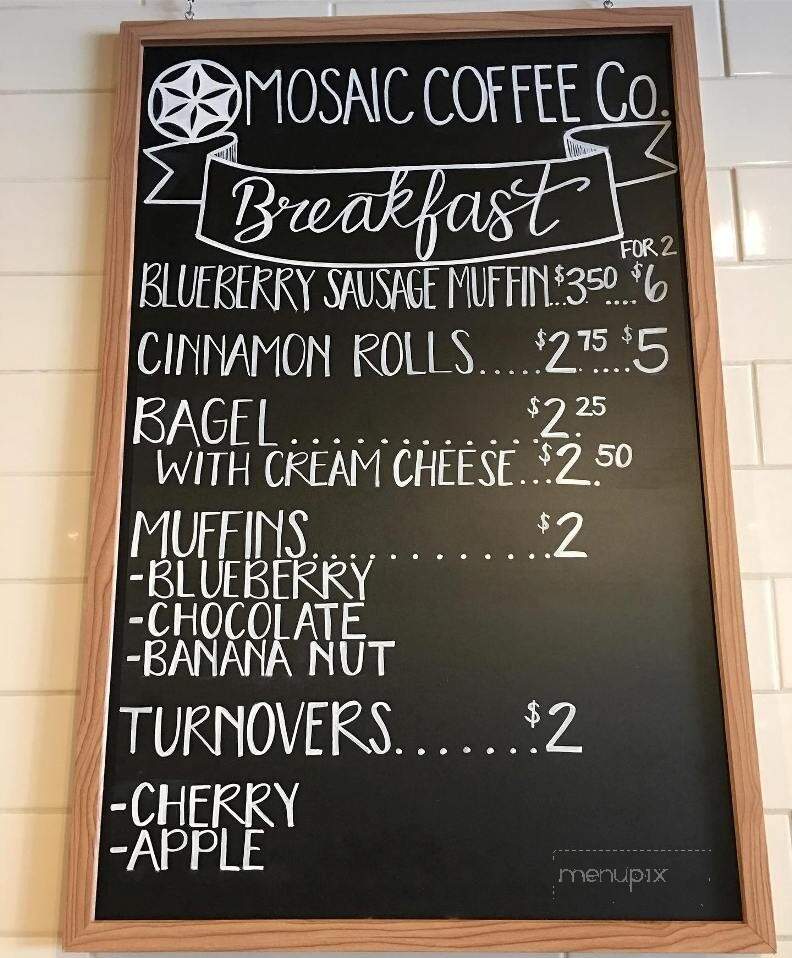 MOSAIC COFFEE Co.
Breakfast
FOR 2
BLUEBERRY SAUSAGE MUFFIN...$3.50....$6
CINNAMON ROLLS.....$2.75....$5
BAGEL............$2.25
WITH CREAM CHEESE...$2.50
MUFFINS............$2
-BLUEBERRY
-CHOCOLATE
-BANANA NUT
TURNOVERS.......$2
-CHERRY
-APPLE
menupix